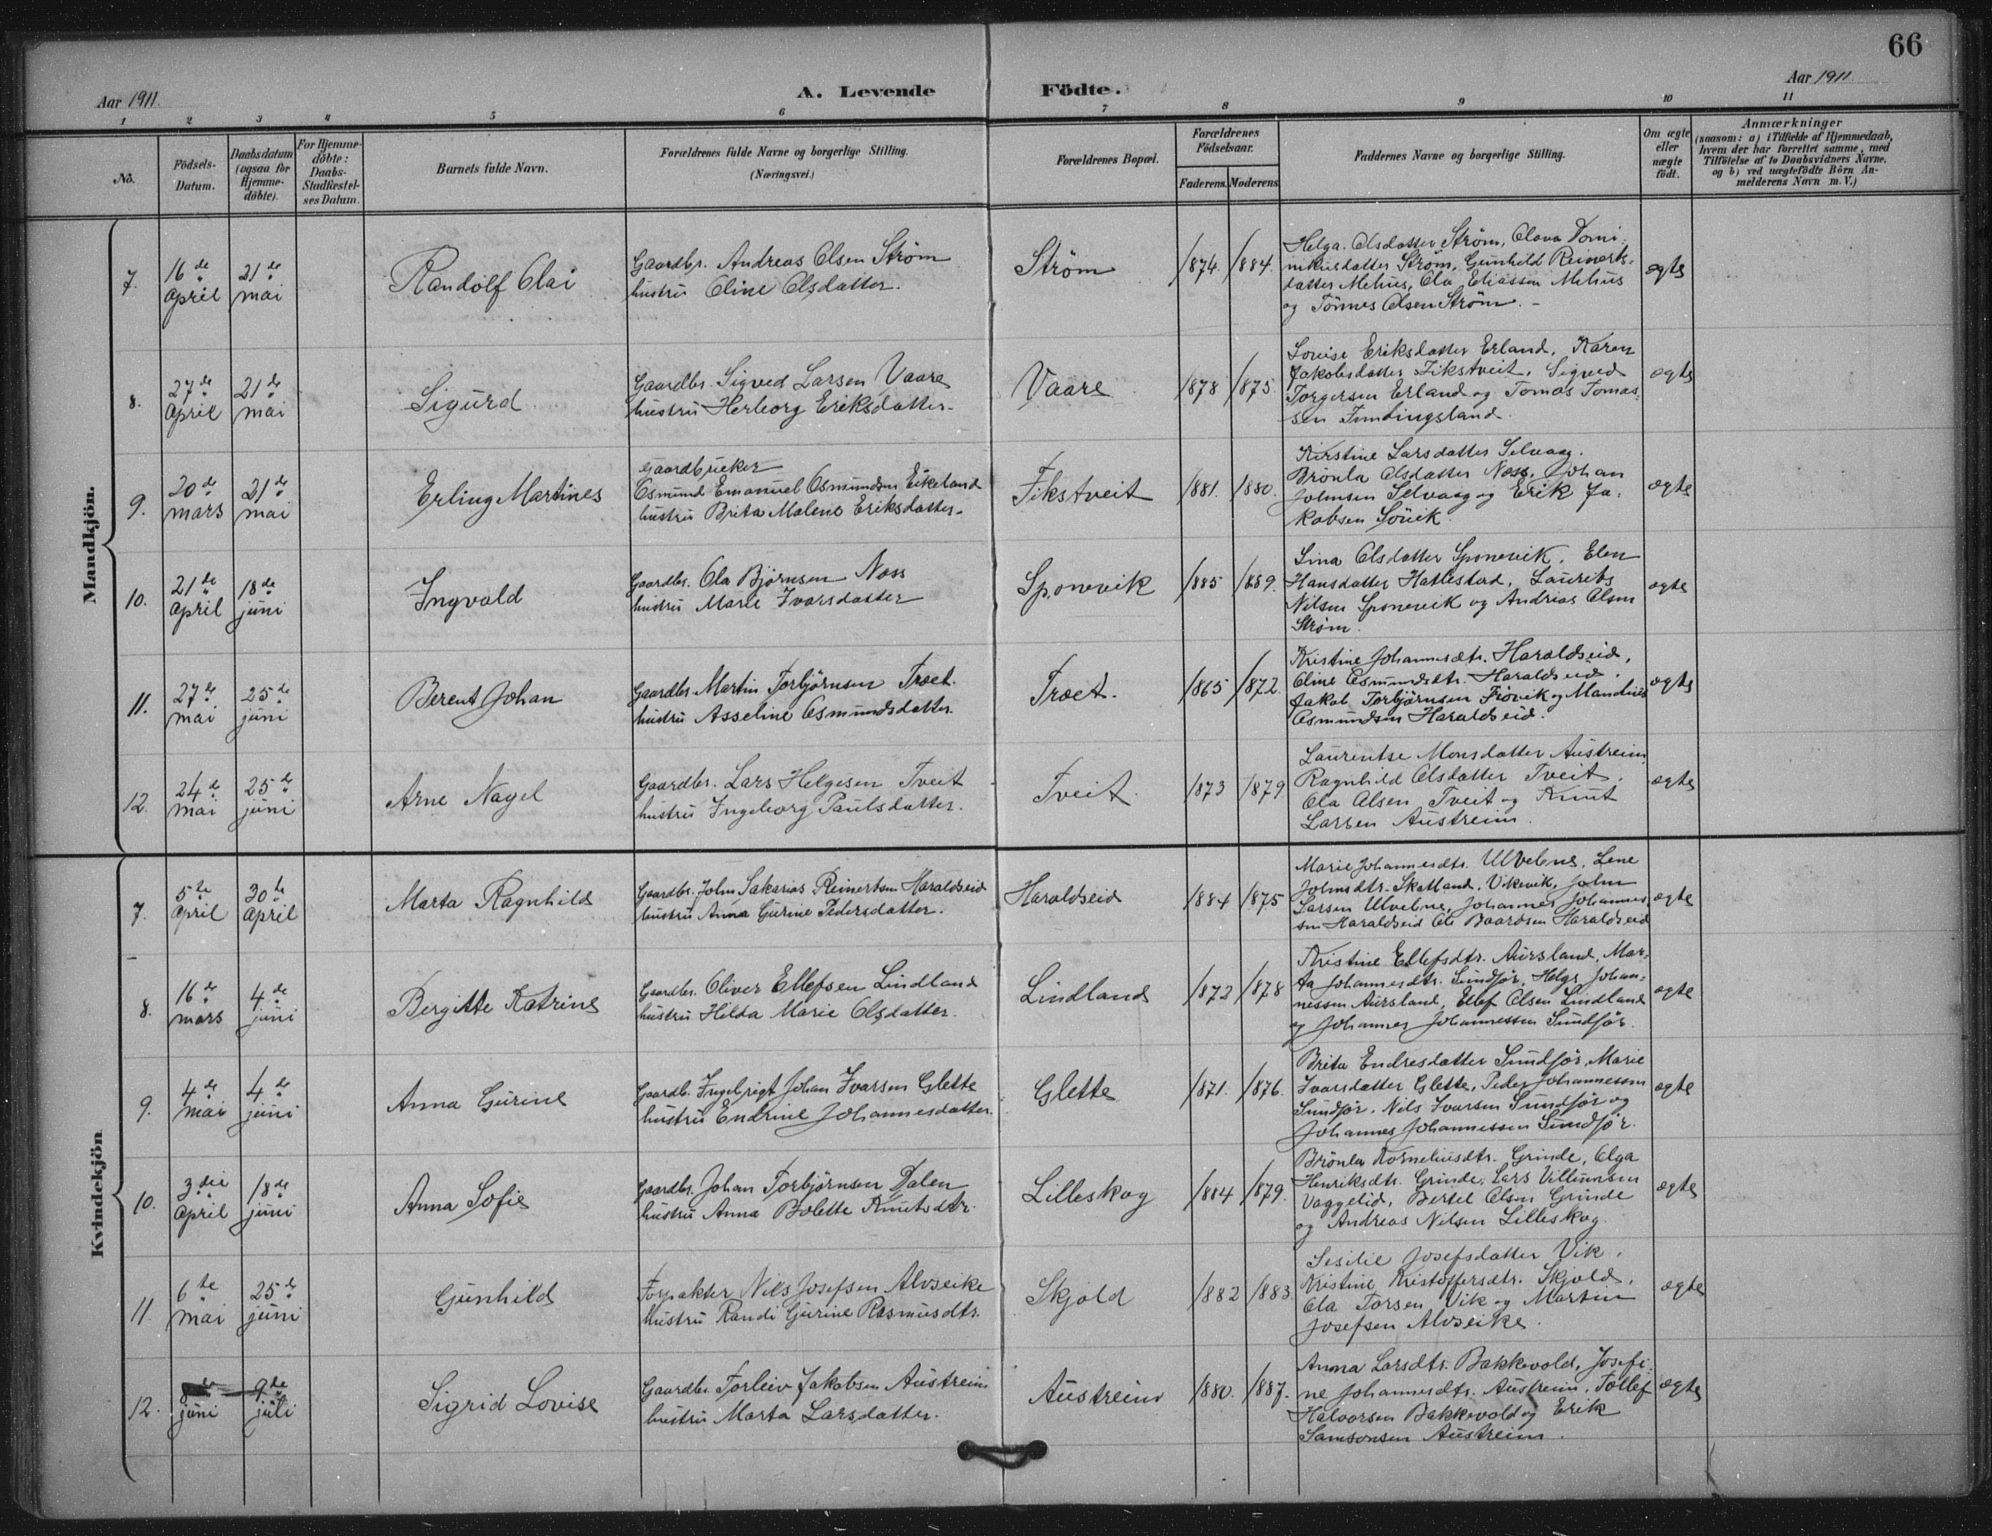 66
Aar 1911.
A. Levende Födte.
Aar 1911
1 2 3 4 5 6 7 8 9 10 11
No.
Födsels-
Datum.
Daabsdatum
(ogsaa for
Hjemme-
döbte).
For Hjemme-
döbte:
Daabs-
Stadfæstel-
ses Datum.
Barnets fulde Navn.
Forældrenes fulde Navne og borgerlige Stilling.
(Næringsvei.)
Forældrenes Bopæl.
Forældrenes
Födselsaar.
Faderens. Moderens.
Faddernes Navne og borgerlige Stilling.
Om ægte
eller
uægte
födt.
Anmærkninger
(saasom: a) i Tilfælde af Hjemmedaab,
hvem der har forrettet samme, med
Tilföielse af to Daabsvidners Navne,
og b) ved uægtefödte Börn An-
melderens Navn m. V.)
Mandkjön.
7.
16de
April
21de
mai
Randolf Olai
Gaardbr. Andreas Olsen Strøm
hustru Oline Olsdatter.
Strøm
1874. 1884.
Helga Olsdatter Strøm, Olava Domi-
nikusdatter Strøm, Gunhild Reinerts-
datter Mehus, Ola Eliassen Mehus
og Tönnes Olsen Strøm. -
ægte
8.
27de
April
21de
mai
Sigurd
Gaardbr. Sigved Larsen Vaare
hustru Herborg Eriksdatter.
Vaare
1878 1875
Lovise Eriksdatter Erland, Karen
Jakobsdatter Fikstveit, Sigved
Torgersen Erland og Tomas Tomas-
sen
ægte
9.
20de
mars
21de
mai
Erling Martines
Gaardbruker
Osmund Emanuel Osmundsen Eikeland
hustru Brita Malene Eriksdatter.
Fikstveit
1881. 1880.
Kirstine Larsdatter Selvaag.
Brönla Olsdatter Næss, Johan
Johnsen Selvaag og Erik Ja-
kobsen Sövik.
ægte
10.
21de
April
18de
juni
Ingvald
Gaardbr. Ola Bjørnsen Næss
hustru Marie Ivarsdatter
Sponevik
1885 1889.
Lina Olsdatter Sponevik, Elen
Hansdatter Hatlestad, Laurits
Nilsen Sponevik og Andrias Olsen
Strøm.
ægte
11.
27de
mai
25de
juni
Berent Johan
Gaardbr. Martin Torbjörnsen Træet.
hustru Asseline Osmundsdatter.
Træet.
1865 1872.
Kristine Johannesdtr. Haraldseid,
Oline Osmundsdtr. Haraldseid,
Jakob Torbjörnsen og Mandius
Osmundsen Haraldseid.
ægte
12.
24de
mai
25de
juni
Arne Nagel
Gaardbr. Lars Helgesen Tveit
hustru Ingeborg Paulsdatter.
Tveit.
1873 1879
Laurentse Monsdatter Austreim
Ragnhild Olsdatter Tveit,
Ola Olsen Tveit og Knut
Larsen Austreim.
ægte
Kvindekjön
7.
5te
April
30te
April
Marta Ragnhild
Gaardbr. John Sakarias Reinertsen Haraldseid
hustru Anna Gurine Pedersdatter.
Haraldseid
1884 1875
Marie Johannesdtr. Ulvelne, Lene
Johnsdtr. Skatland, Vikevik, John
Larsen Ulvelne, Johannes Johannes-
sen Haraldseid Ole Baardsen Haraldseid
ægte
8.
16de
mars
4de
juni
Bergitte Katrine
Gaardbr. Oliver Ellefsen Lindland
hustru Hilda Marie Olsdatter.
Lindland
1872 1878
Kristine Ellefsdtr. Aursland, Mar-
ta Johannesdtr. Sundför, Helge Johan-
nessen Aursland, Ellef Olsen Lindland
og Johannes Johannessen Sundför.
ægte
9.
4de
mai
4de
juni
Anna Gurine
Gaardb. Ingebrigt Johan Ivarsen Glette
hustru Endrine Johannesdatter.
Glette
1871. 1876.
Brita Endresdatter Sundför, Marie
Ivarsdatter Glette, Peder Johannessen
Sundför, Nils Ivarsen Sundför og
Johannes Johannessen Sundför.
ægte
10.
3die
April
18de
juni
Anna Sofie
Gaardbr. Johan Torbjörnsen Dalen
hustru Anna Bolette Knutsdtr.
Lilleskog
1884 1879.
Brönla Korneliusdtr. Grinde, Olga
Henriksdtr. Grinde, Lars Villumsen
Vaggelid, Bertel Olsen Grinde
og Andreas Nilsen Lilleskog.
ægte
11
6te
mai
25de
juni
Gunhild
Forpakter Nils Josefsen Alvseike
Hustru Randi Gurine Rasmusdtr.
Skjold
1882 1883.
Sesilie Josefsdatter Vik,
Kristine Kristoffersdtr. Skjold,
Ola Torsen Vik og Martin
Josefsen Alvseike.
ægte
12.
juni
9de
juli
Sigrid Lovise
Gaardbr. Torleiv Jakobsen Austreim
hustru Marta Larsdatter.
Austreim
1880. 1887.
Anna Larsdtr. Bakkevold, Josefi-
ne Johannesdtr. Austreim, Tollef
Halvorsen Bakkevold og Erik
Samsonsen Austreim.
ægte